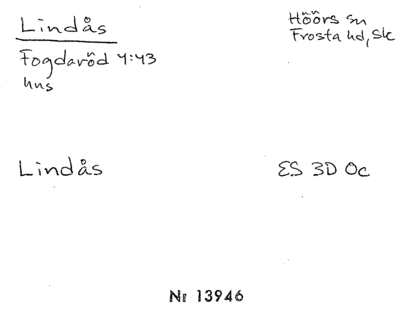 Lindås
Höörs sn
Frosta hd, Sk
Fogdaröd 4:43
hns
Lindås
ES 3D 0c
Nr 13946